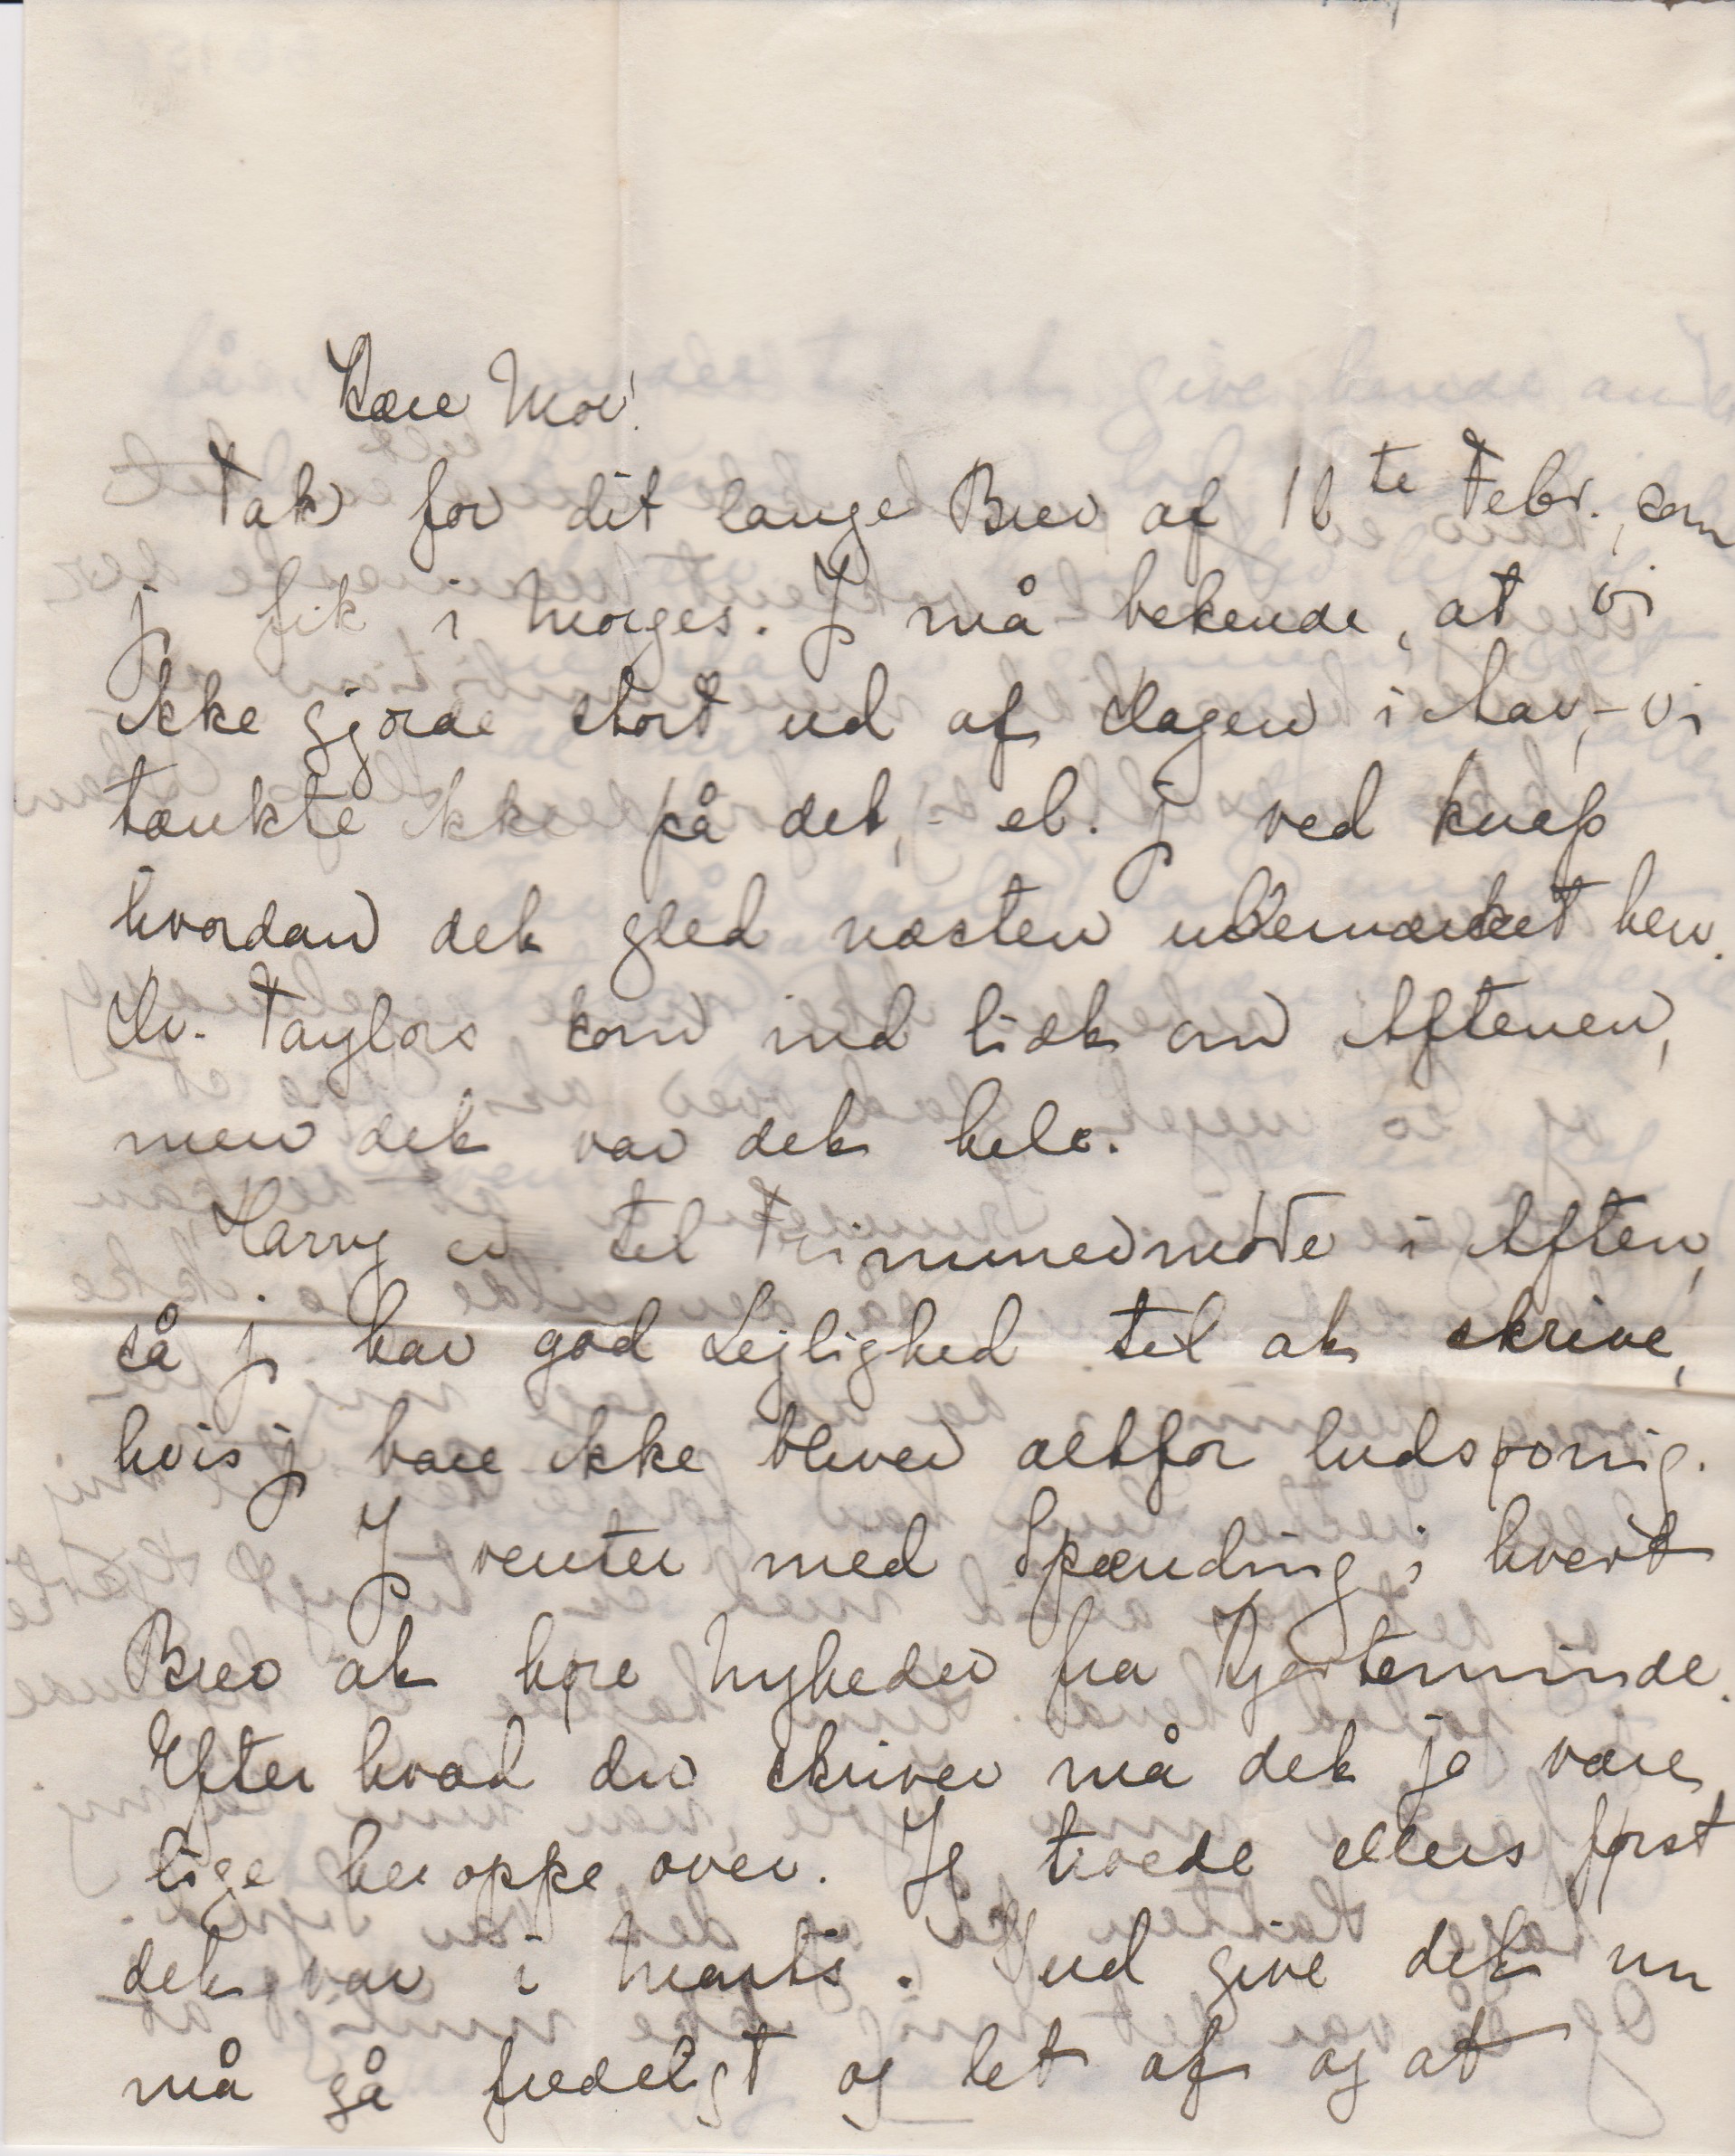 Kære Mor!
Tak for dit lange Brev af 16te Febr., som
j fik i Morges. J må bekende, at vi
ikke gjorde stort ud af Dagen i Aar, - vi
tænkte ikke på det, - el. j ved knap
hvordan det gled næsten ubemærket hen.
Dr. Taylors kom ind lidt om Aftenen,
men det var det hele.
Harry er til Trimmermøde i Aften,
så j har god Lejlighed til at skrive,
hvis j bare ikke bliver altfor ludsporig.
J venter med Spænding i hvert
Brev at høre Nyheder fra Kjerteminde.
Efter hvad du skriver må det jo være
lige heroppe over. Jeg troede ellers først
det var i Marts. Gud give det nu
må gå fredeligt og let af og at